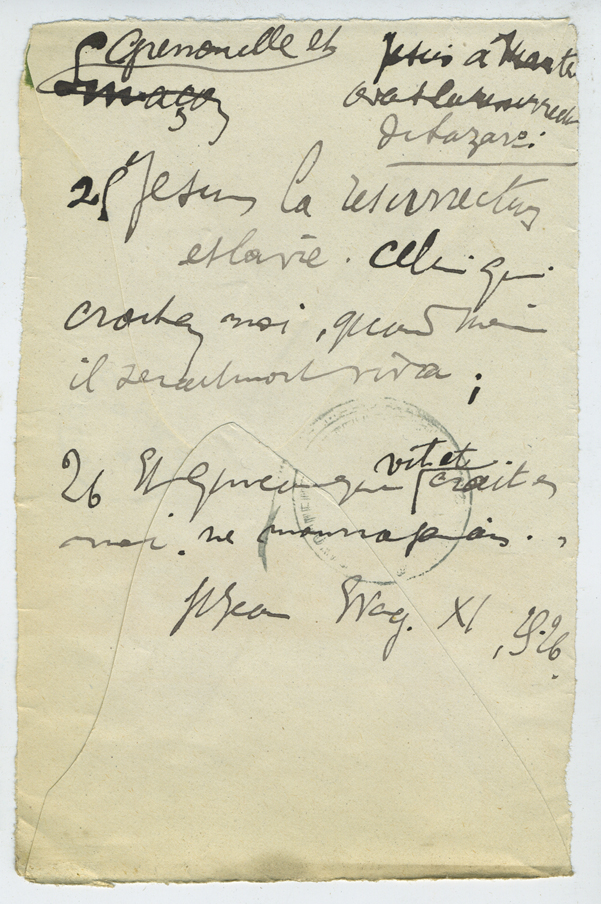 Grenouille et
Limaçon
Jesus à Marthe
avant la résurrection
de Lazare:
25 Je suis la résurrection
et la vie. Celui qui
croit en moi, quand même
il serait mort vivra;
26 Et quiconque vit et croit en
moi. ne mourra jamais..
St Jean Evag. XI, 25-26.